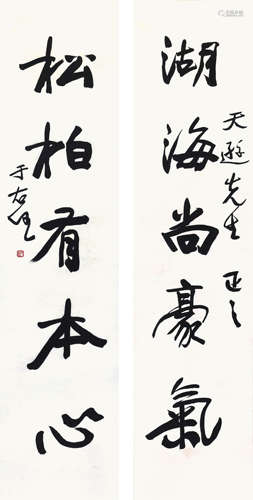 天遊先生 正之
湖海尚豪氣
松柏有本心
于右任